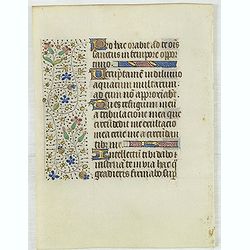 Pro hac orabit ad te ois
sanctus in tempore oppor
tuno.
Veruptamen in diluuio
aquarum multarum
ad eum non approximabt.
Tu es refugium meum
a tribulacione mea que
circumdedit me exultacio
mea erue me a circumdan
tibus me.
Intellectum tibi dabo et
instruam te in via hac qua
gradieris firmabo sup